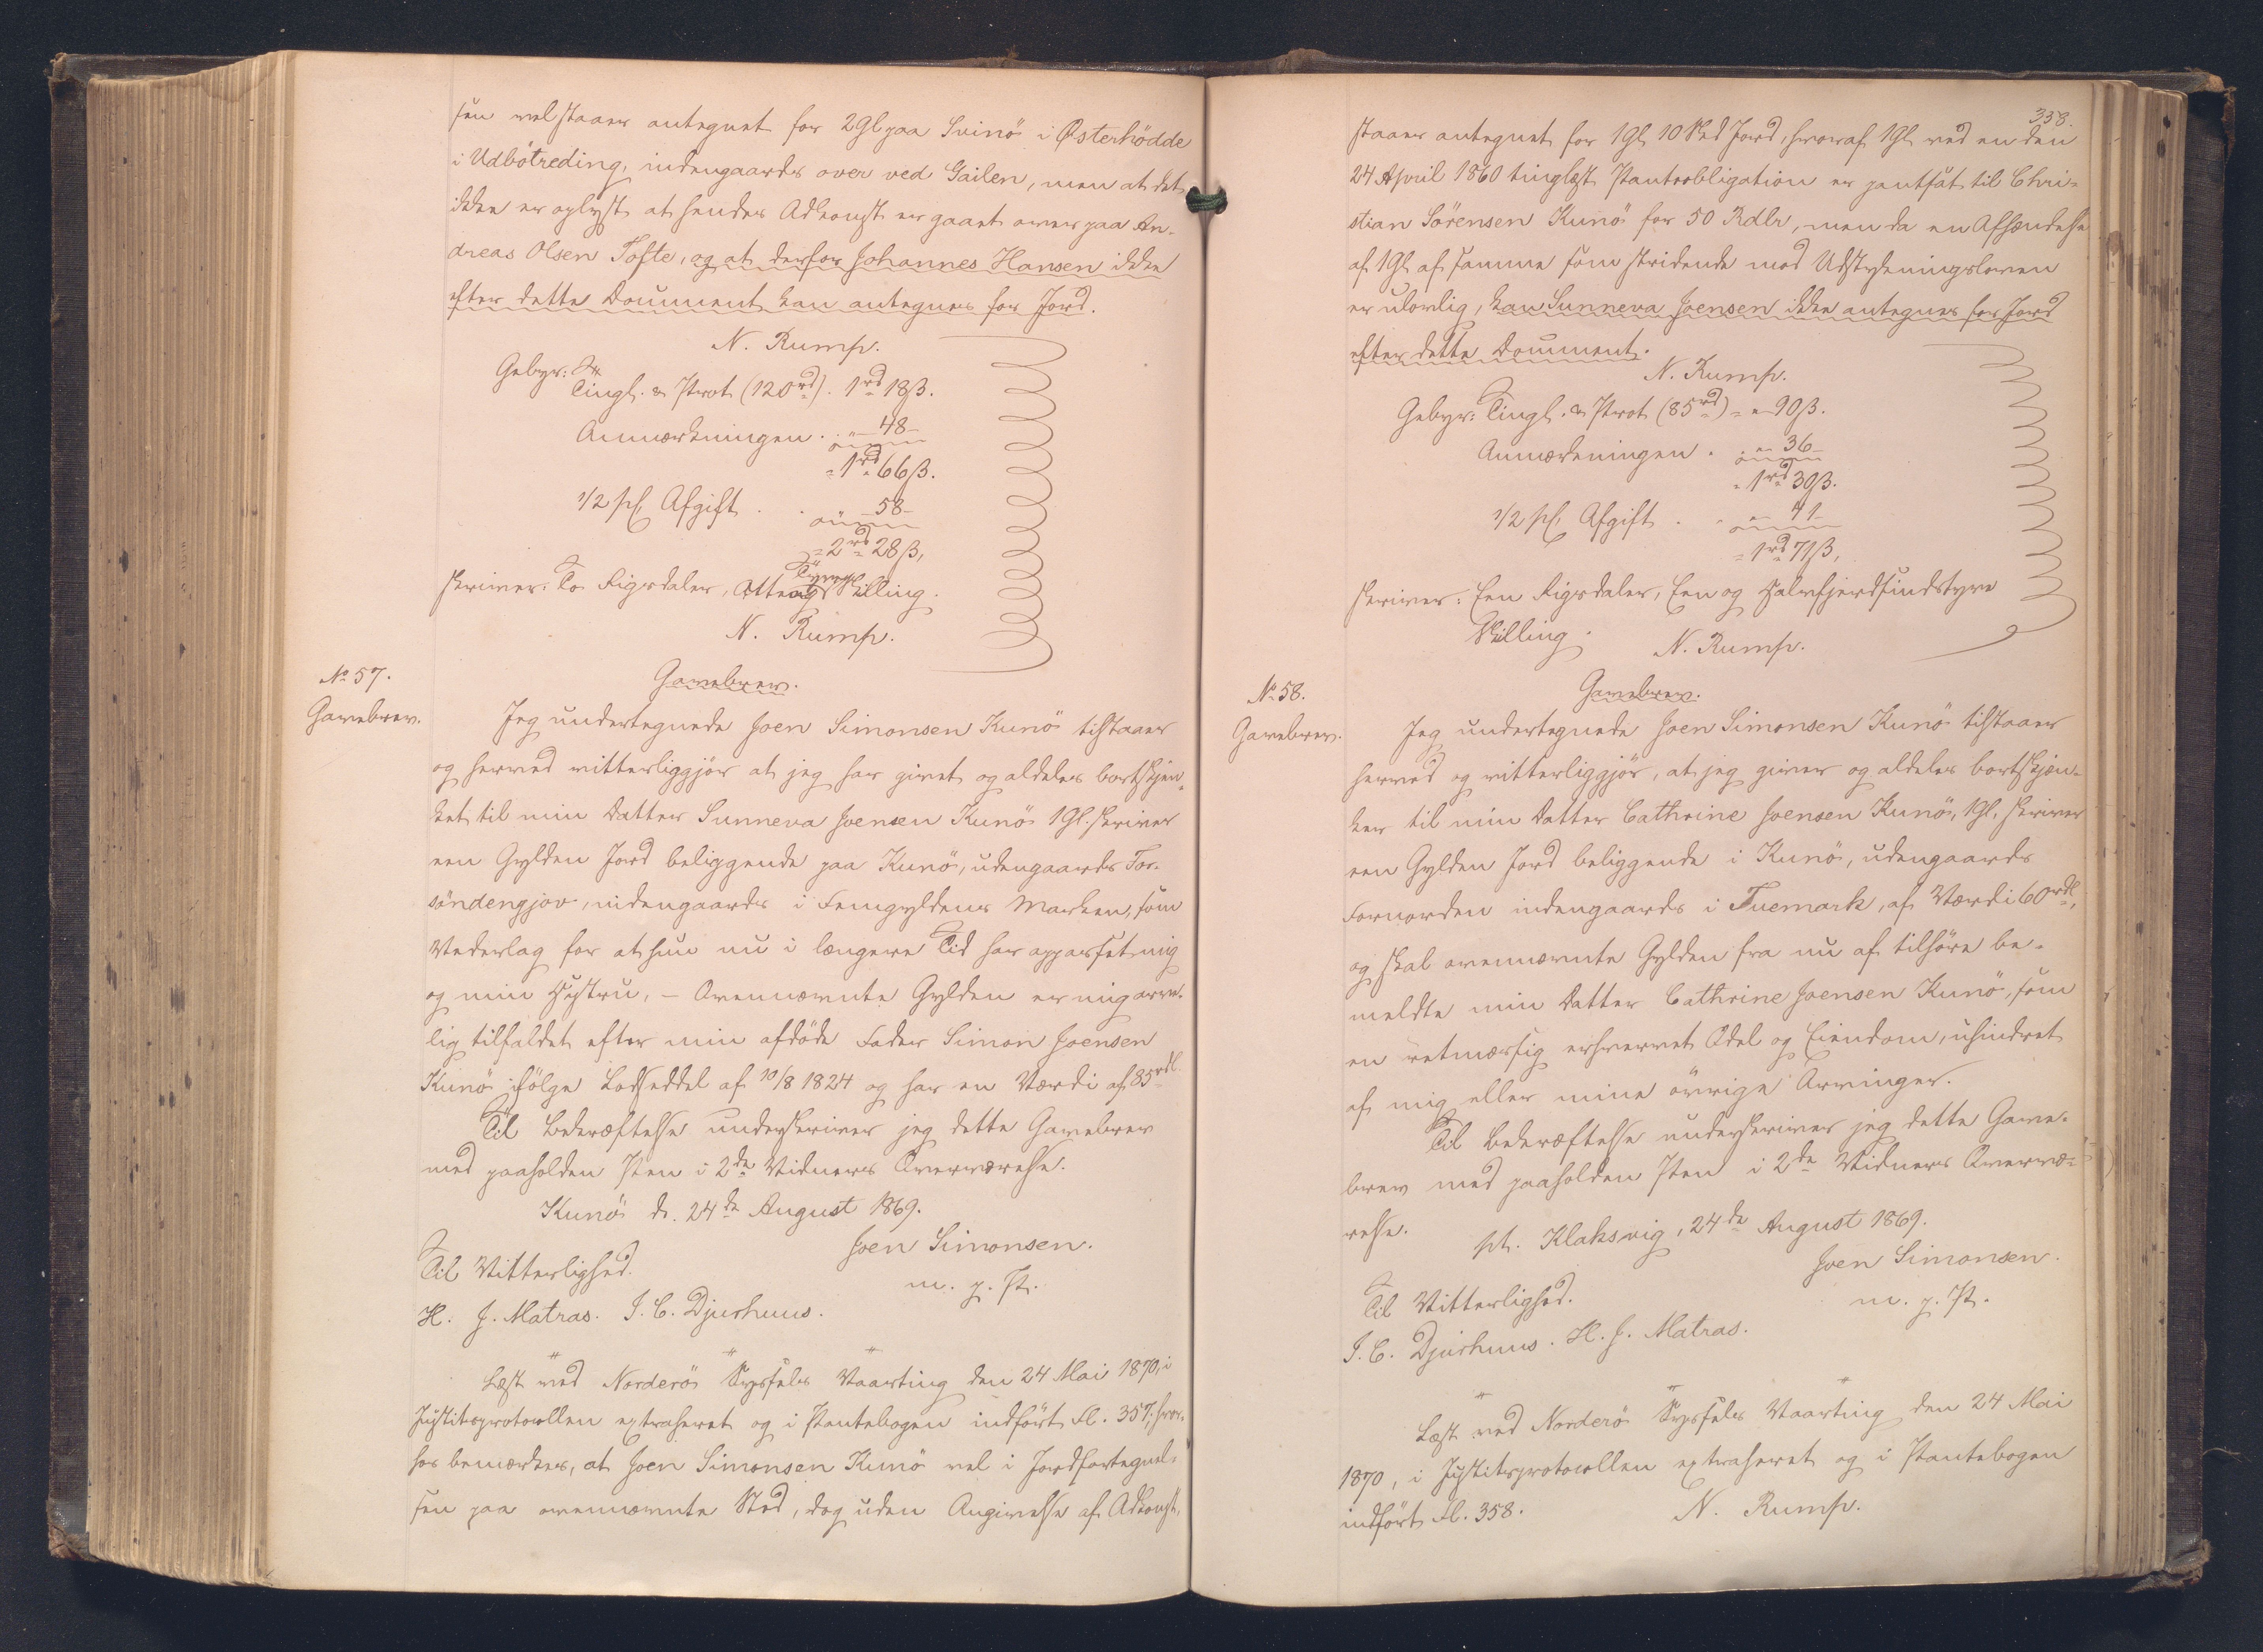 sen vel staaer antegnet for 2 Gl paa Svinö i Østerhödde
i Udbötreding, indengaards over ved Gailen, men at det
ikke er oplyst at hendes Adkomst er gaaet over paa An-
dreas Olsen Tofte, og at derfor Johannes Hansen ikke
efter dette Document kan antegnes for Jord.
N. Rump.
Gebyr:
Tingl. & Prot (120 rd). 1 rd 18 ß.
Anmærkningen . " - 48 -
= 1 rd 66 ß.
1/2 pCt Afgift . . 58 -
= 2 rd 28 ß,
skriver: To Rigsdaler, Otte og Tyve Skilling.
N. Rump.
No 57.
Gavebrev.
Gavebrev.
Jeg undertegnede Joen Simonsen Kunö tilstaaer
og herved vitterliggjör at jeg har givet og aldeles bortskjæn-
ket til min Datter Sunneva Joensen Kunö 1 Gl. skriver
een Gylden Jord beliggende paa Kunö, udengaards For-
söndengjov, indengaards i Femgyldens Marken, som
Vederlag for at hun nu i længere Tid har opvartet mig
og min Hustru, - Ovennævnte Gylden er mig arve-
lig tilfaldet efter min afdöde Fader Simon Joensen
Kunö ifölge Lodseddel af 10/8 1824 og har en Værdi af 85 rdl
Til Bekræftelse underskriver jeg dette Gavebrev
med paaholden Pen i 2de Vidners Overværelse.
Kunö d. 24de August 1869.
Joen Simonsen.
m. p. P.
Til Vitterlighed.
H. J. Matras. J. C. Djurhuus.
Læst ved Norderö Syssels Vaarting den 24 Mai 1870, i
Justitsprotocollen extraheret og i Pantebogen indfört Fl. 357; hvor-
hos bemærkes, at Joen Simonsen Kunö vel i Jordfortegnel-
sen paa ovennævnte Sted, dog uden Angivelse af Adkomst,
358.
staaer antegnet for 1 Gl 10 Skd Jord, hvoraf 1 Gl ved en den
24 April 1860 tinglæst Panteobligation er pantsat til Chri-
stian Sörensen Kunö for 50 Rdlr, men da en Afhændelse
af 1 Gl af samme som stridende mod Udstykningsloven
er ulovlig, kan Sunneva Joensen ikke antegnes for Jord
efter dette Document.
N. Rump.
Gebyr: Tingl. & Prot (85 rd) = " - 90 ß.
Anmærkningen . " - 36 -
= 1 rd 30 ß.
1/2 pCt. Afgift . " - 41 -
= 1 rd 71 ß,
skriver: Een Rigsdaler, Een og Halvfjerdsindstyve
Skilling.
N. Rump.
No 58.
Gavebrev.
Gavebrev.
Jeg undertegnede Joen Simonsen Kunö tilstaaer
herved og vitterliggjör, at jeg giver og aldeles bortskjæn-
ker til min Datter Cathrine Joensen Kunö, 1 Gl. skriver
een Gylden Jord beliggende i Kunö, udengaards
Fornorden indengaards i Tuemark, af Værdi 60 rdl,
og skal ovennævnte Gylden fra nu af tilhöre be-
meldte min Datter Cathrine Joensen Kunö, som
en retmæssig erhvervet Odel og Eiendom, uhindret
af mig eller mine övrige Arvinger.
Til Bekræftelse underskriver jeg dette Gave-
brev med paaholden Pen i 2de Vidners Overvæ-
relse.
pt. Klaksvig, 24de August 1869.
Joen Simonsen.
m. p. P.
Til Vitterlighed.
J. C. Djurhuus. H. J. Matras.
Læst ved Norderö Syssels Vaarting den 24 Mai
1870, i Justitsprotocollen extraheret og i Pantebogen
indfört Fl. 358.
N. Rump.